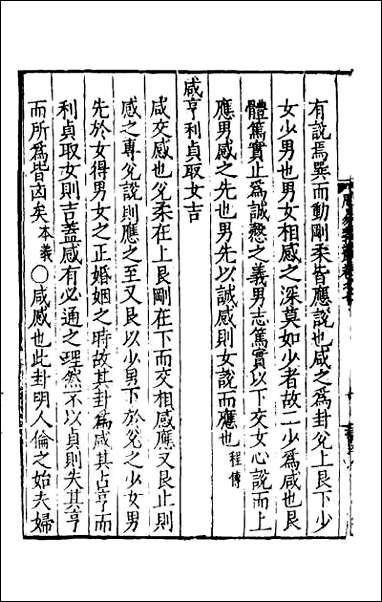 有說焉巽而動剛柔皆應說也咸之為卦兊上艮下少
女少男也男女相感之深莫如少者故二少為咸也艮
體篤實止為誠慤之義男志篤實以下交女心說而上
應男感之先也男先以誠感則女說而應也程傳
咸亨利貞取女吉
咸交感也兊柔在上艮剛在下而交相感應又艮止則
感之專兊說則應之至又艮以少男下於兊之少女男
先於女得男女之正婚姻之時故其卦為咸其占亨而
利貞取女則吉蓋感有必通之理然不以貞則失其亨
而所為皆凶矣本義〇咸感也此卦明人倫之始夫婦